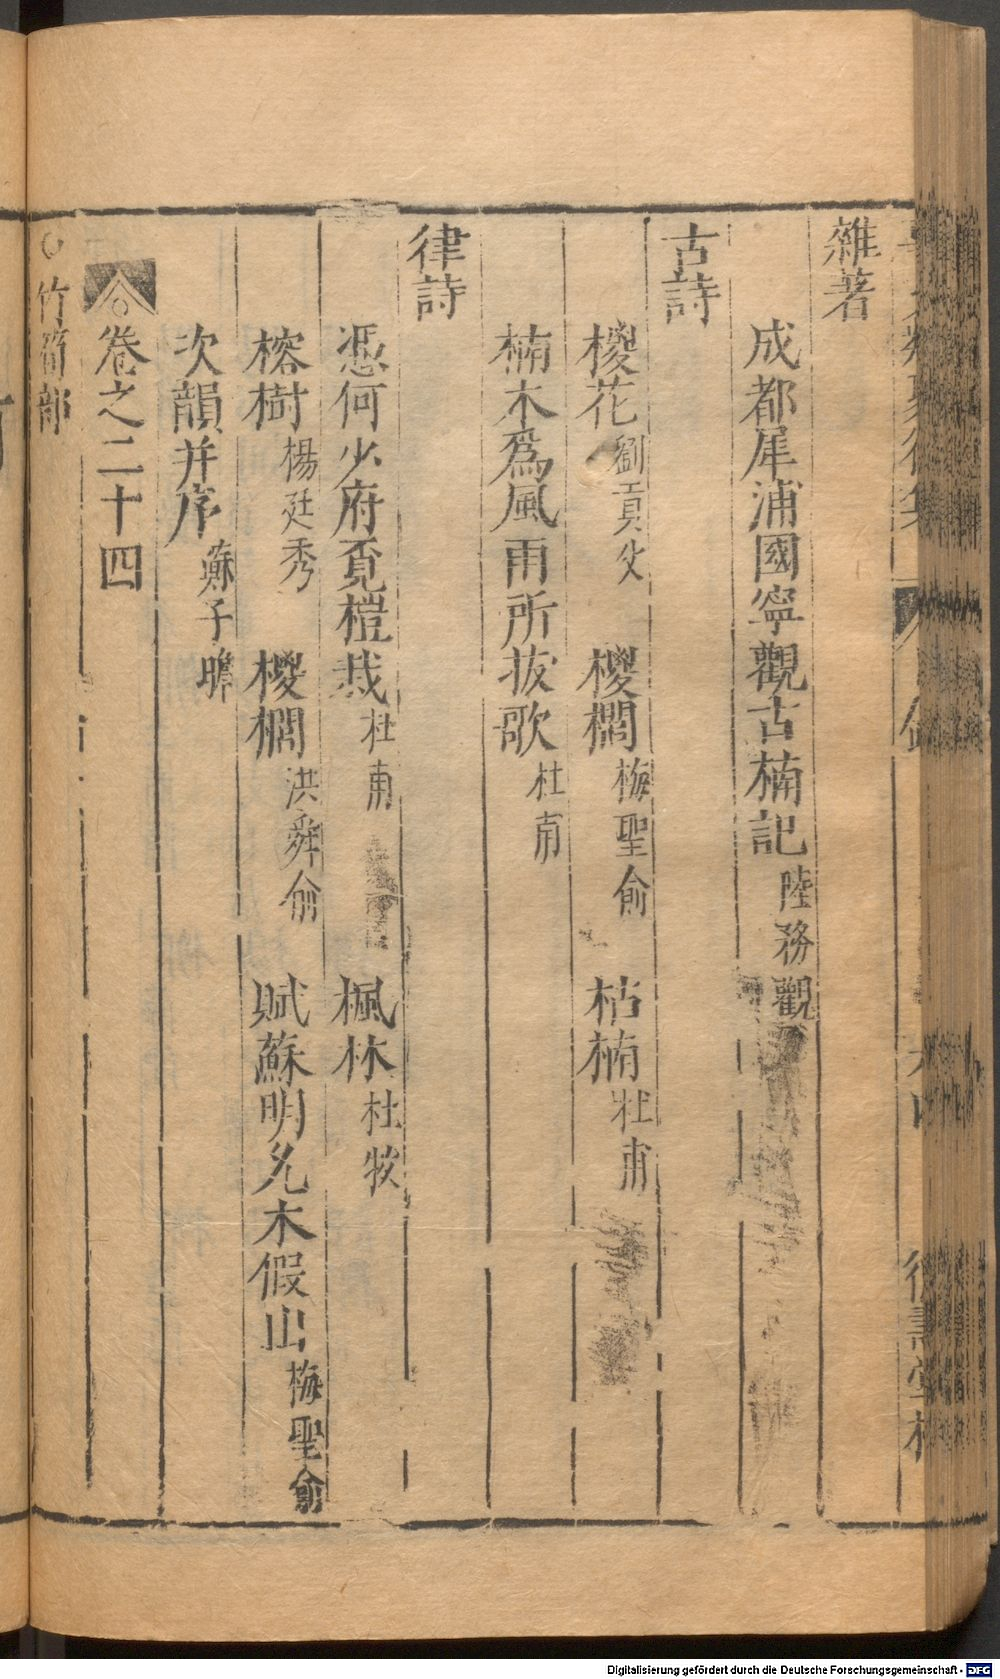 雜著
成都犀浦國寧觀古楠記 陸務觀
古詩
椶花 劉貢父 椶櫚 梅聖俞 枯楠 杜甫
楠木爲風雨所拔歌 杜甫
律詩
憑何少府覓榿栽 杜甫 楓林 杜牧
榕樹 楊廷秀 椶櫚 洪舜俞 賦蘇明允木假山 梅聖俞
次韻并序 蘇子瞻
卷之二十四
竹筍部
Digitalisierung gefördert durch die Deutsche Forschungsgemeinschaft - DFG